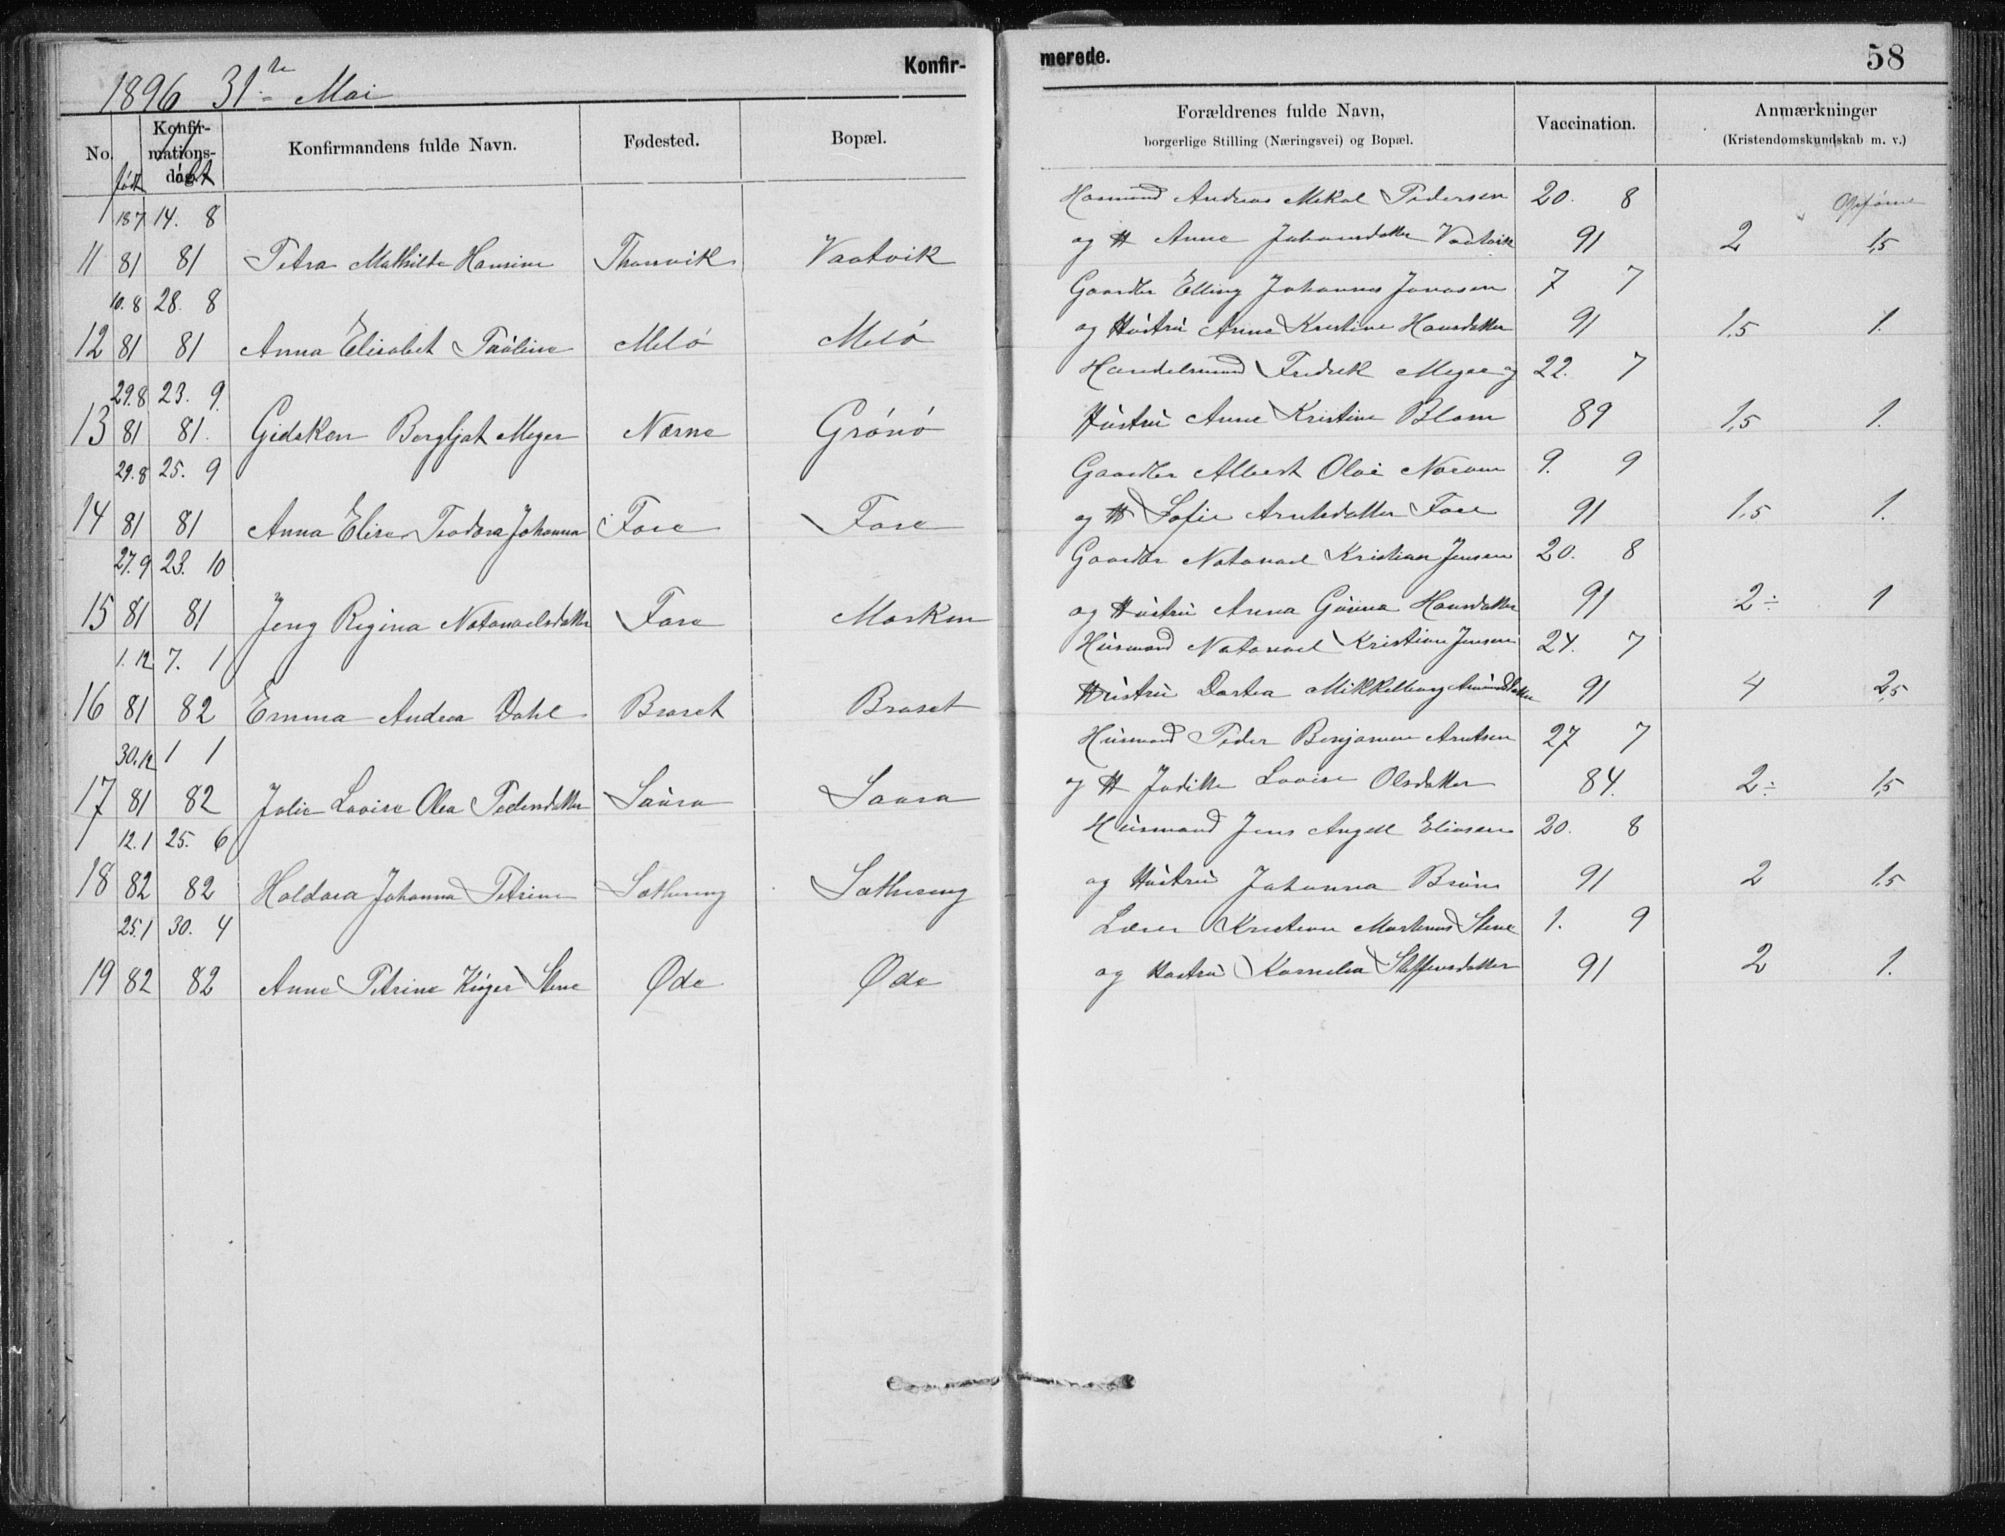 Konfir-
merede.
58
1896 31te Mai
No.
født
Konfir-
mations-
dag.
Konfirmandens fulde Navn.
Fødested.
Bopæl.
Forældrenes fulde Navn,
borgerlige Stilling (Næringsvei) og Bopæl.
Vaccination.
Anmærkninger
(Kristendomskundskab m. v.)
13.7 14. 8 Andreas Mikal Pedersen 20. 8
11 81 81 Petra Mathilde Hansine Vaatvik og H Anne Johansdatter Vaatvik 91 2 1,5
10.8 28. 8 Gaardbr Elling Johannes Jonasen 7 7
12 81 81 Anna Elisabet Paúline Meló Meló og Hústrú Anne Kristine Hansdatter 91 1,5 1.
29.8 23. 9. Handelsmand Fredrik Meyer og 22. 7
13 81 81. Gidsken Bergljot Meyer Nærnæ Grónó Hústrú Anne Kristine Blom 89 1,5 1.
29.8 25. 9 Gaardbr Albert Olai 9. 9
14 81 81 Anna Elise Teodora Johanna Fore Fore og H Sofie Arntsdatter Fore 91 1,5 1.
27.9 23. 10 Gaardbr Natanael Kristian Jensen 20. 8
15 81 81 Jeng Regina Natanaelsdatter Fore Marken og Hústrú Anna Gúrina Hansdatter 91 2÷ 1
1.12 7. 1 Húsmand Natanael Kristian Jensen 24. 7
16 81 82 Emma Andrea Dahl Braset Braset Hústrú Dortea Mikkelborg 91 4 2,5
30.12 1 1 Húsmand Peder Benjamin Arntsen 27 7
17 81 82 Julie Lovise Olea Pedersdatter Saúra Saura og H Juditte Lovise Olsdatter 84. 2÷ 1,5
12.1 25. 6 Húsmand Jens Angell Eliasen 20. 8
18 82 82 Haldora Johanna Petrine Sæthereng Sæthereng og Hústrú Johanna Brúun 91 2 1,5
25.1 30. 4 Lærer Kristian Martinus Stene 1. 9
19 82 82 Anne Petrine Krúger Stene Øde Øde og Hústrú Kornelia Steffensdatter 91 2 1.